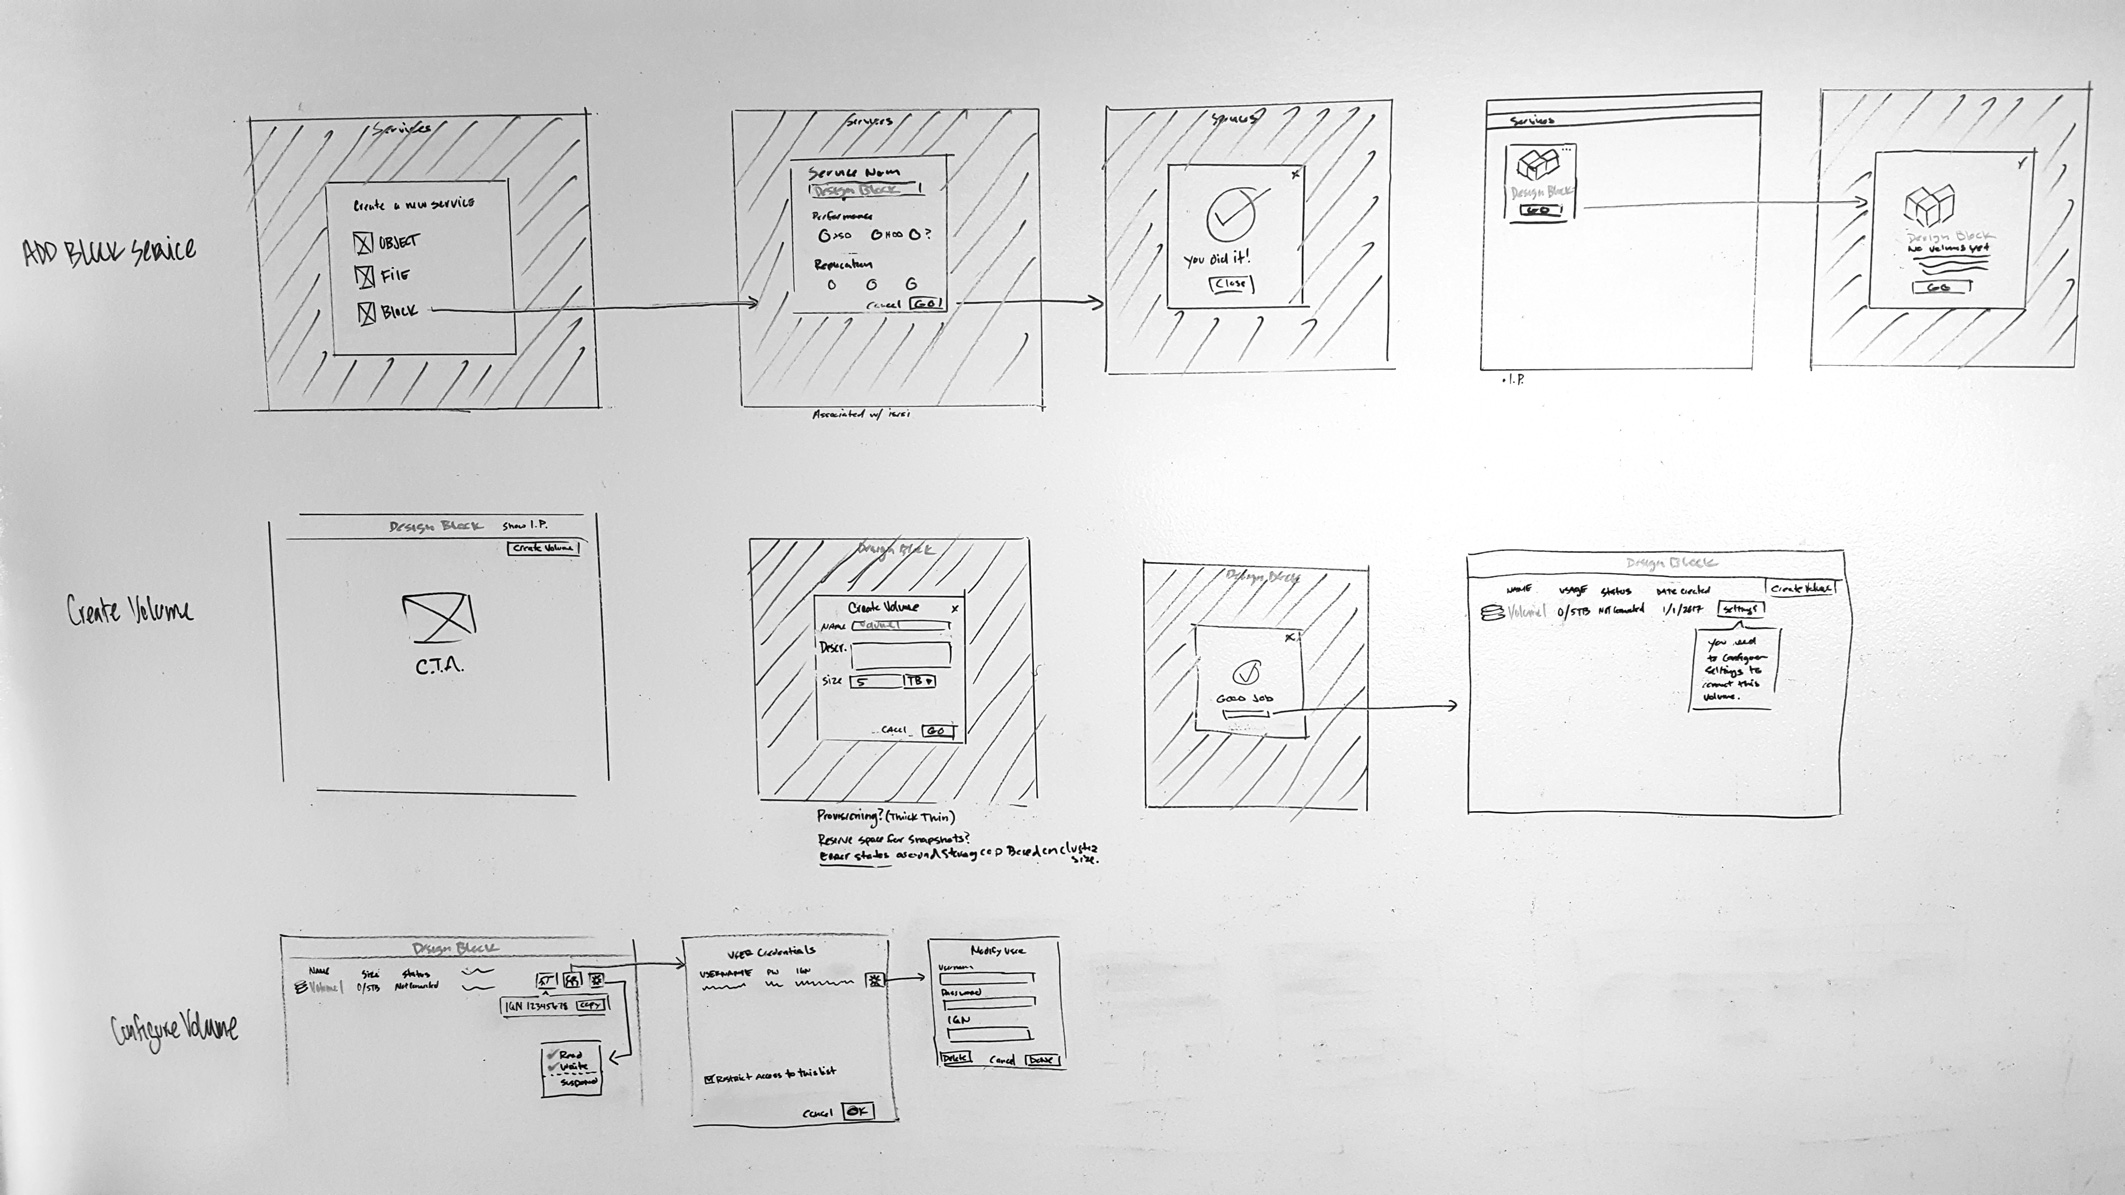 ADD Block Service
Services
Create a new service
OBJECT
FILE
Block
Services
Service Nam
Design Block
Performance
?
Replication
Cancel GO!
Associated w/ iscsi
Services
You did it!
Close
Services
Design Block
GO
• I.P.
Design Block
No volums yet
GO
Create Volume
Design Block Show I.P.
Create Volume
C.T.A.
Design Block
Create Volume x
Name Volume1
Descr.
Size 5 TB
GO
Provisioning? (Thick Thin)
Reserve space for snapshots?
Error states around Based on cluster
size.
Design Block
x
Good Job
Design Block
NAME USAGE STATUS DATE Created Create Volume
Volume1 0/5TB Not Connected 1/1/2017 Settings
You need
to configure
Settings to
connect this
Volume.
Configure Volume
Design Block
Name Size Status
Volume1 0/5TB Not Connected
IQN 12345678 Copy
Read
Write
Suspend
User Credentials
USERNAME PW IQN
Restrict Access to this list
Cancel OK
Modify User
Username
Password
IQN
Delete Cancel Done